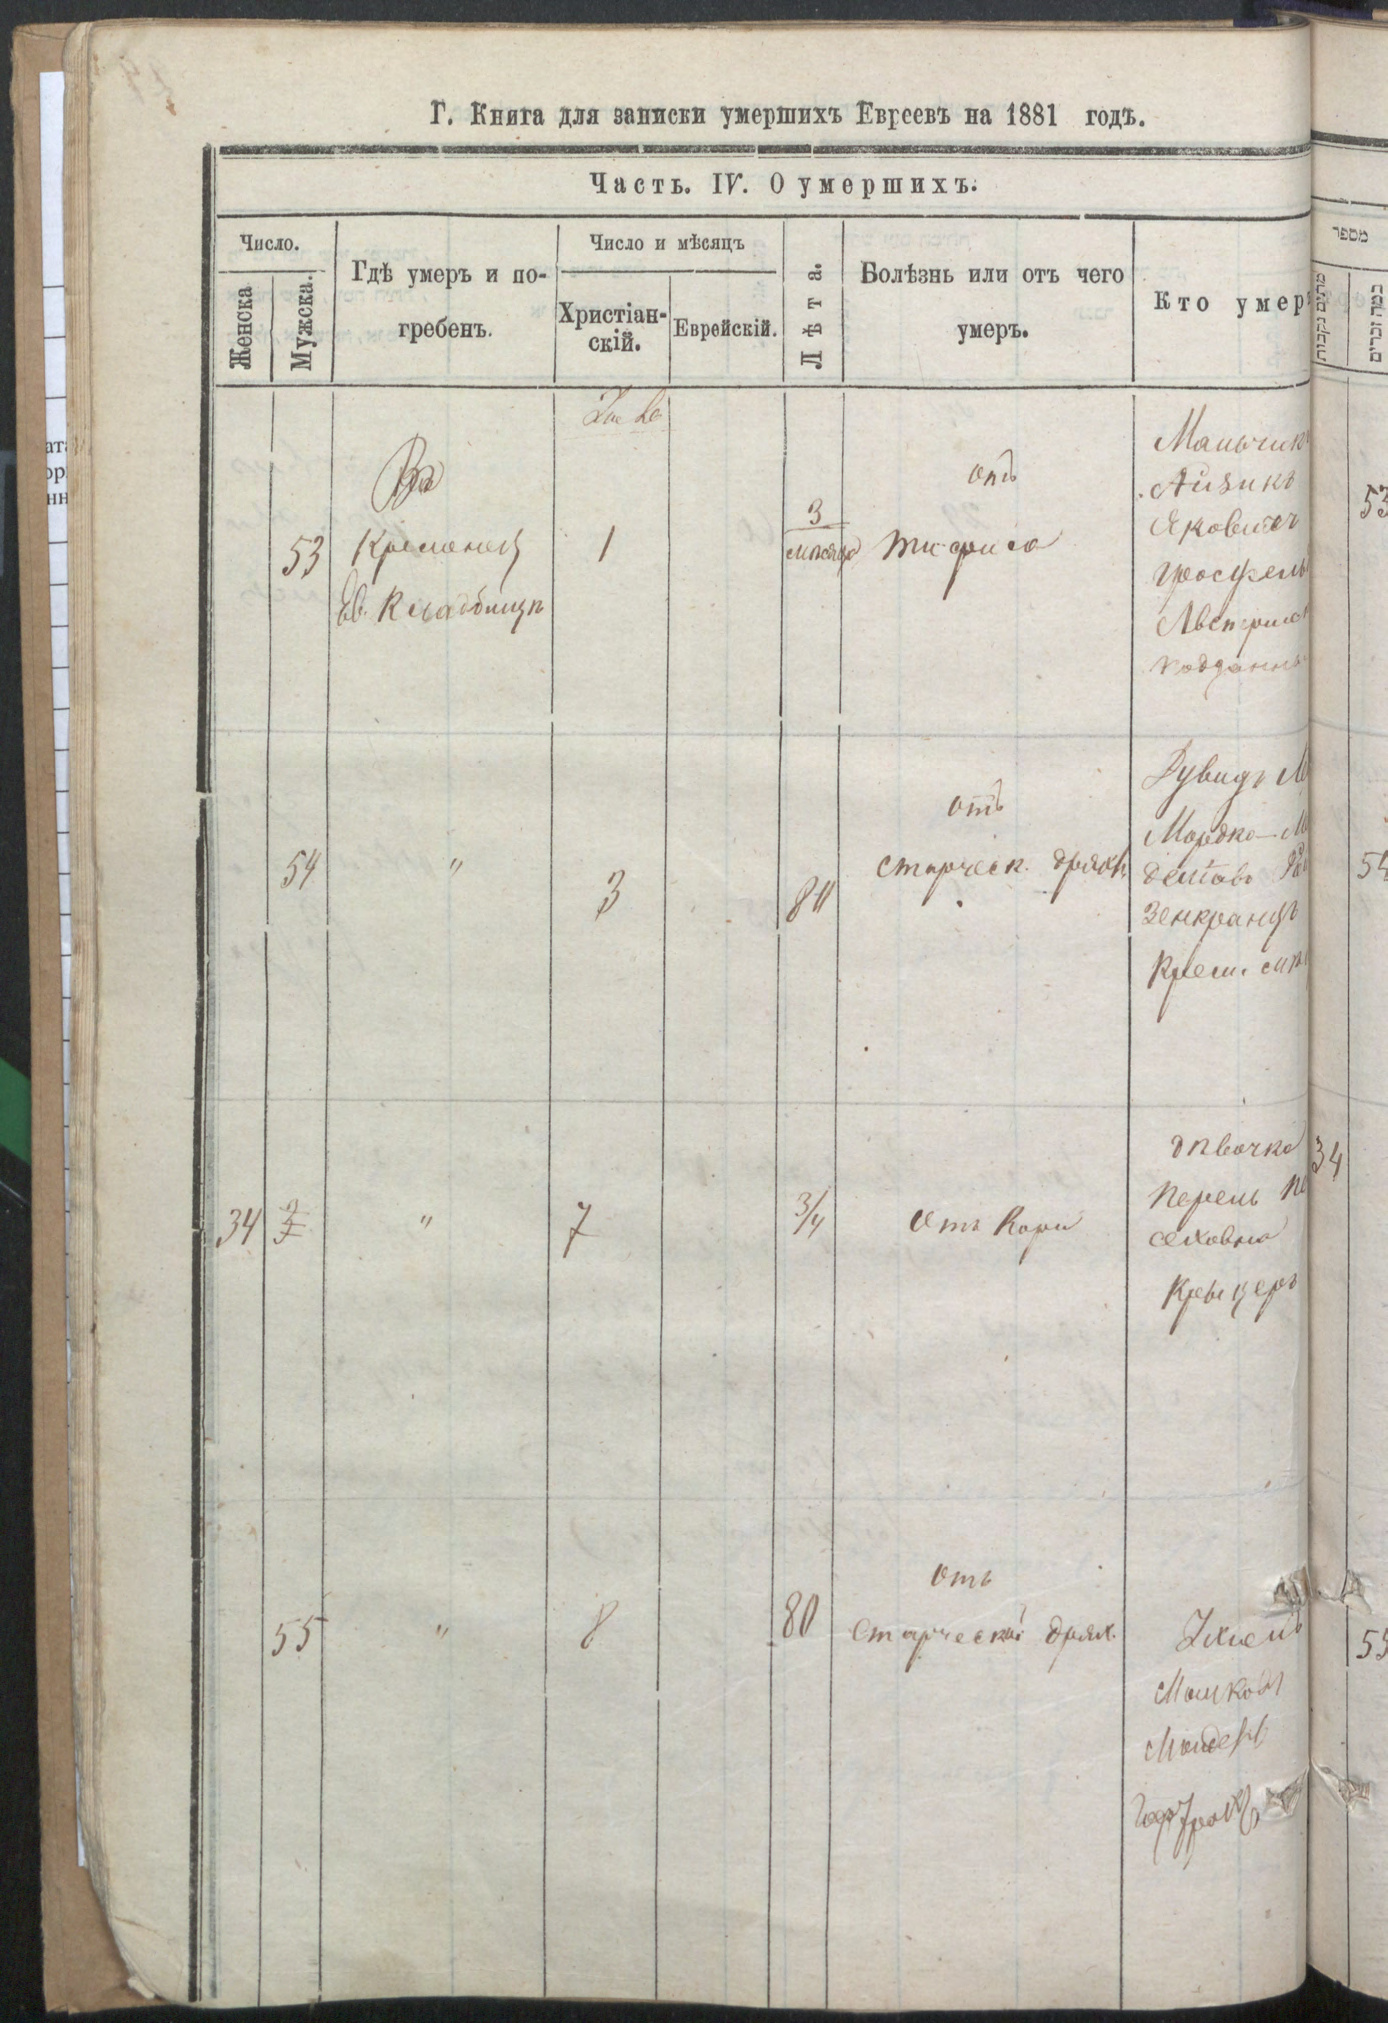 Г. Книга для записки умершихъ Евреевъ на 1881 годъ.
Часть. IV. О умершихъ.
Число.
Женска
Мужска.
Гдѣ умеръ и по-
гребенъ.
Число и мѣсяцъ
Христіан-
скій.
Еврейскій.
Лѣта.
Болѣзнь или отъ чего
умеръ.
Кто умер
מספר
53
Въ
Кременец
Ев. Кладбищѣ
1
3
месяца
отъ
тифиса
Мальчикъ
Айзикъ
Яковичъ
Австрийск
подданны
53
54
"
3
80
отъ
старческ. дряхл
Дувидъ М
Мордко-М
Зенкранцъ
Крем. мѣщ
54
34
"
7
3/4
Отъ Кори
дѣвочка
Перель
Крыцеръ
34
55
"
8
80
отъ
старческой дрях.
Ихиель
Мошков
55